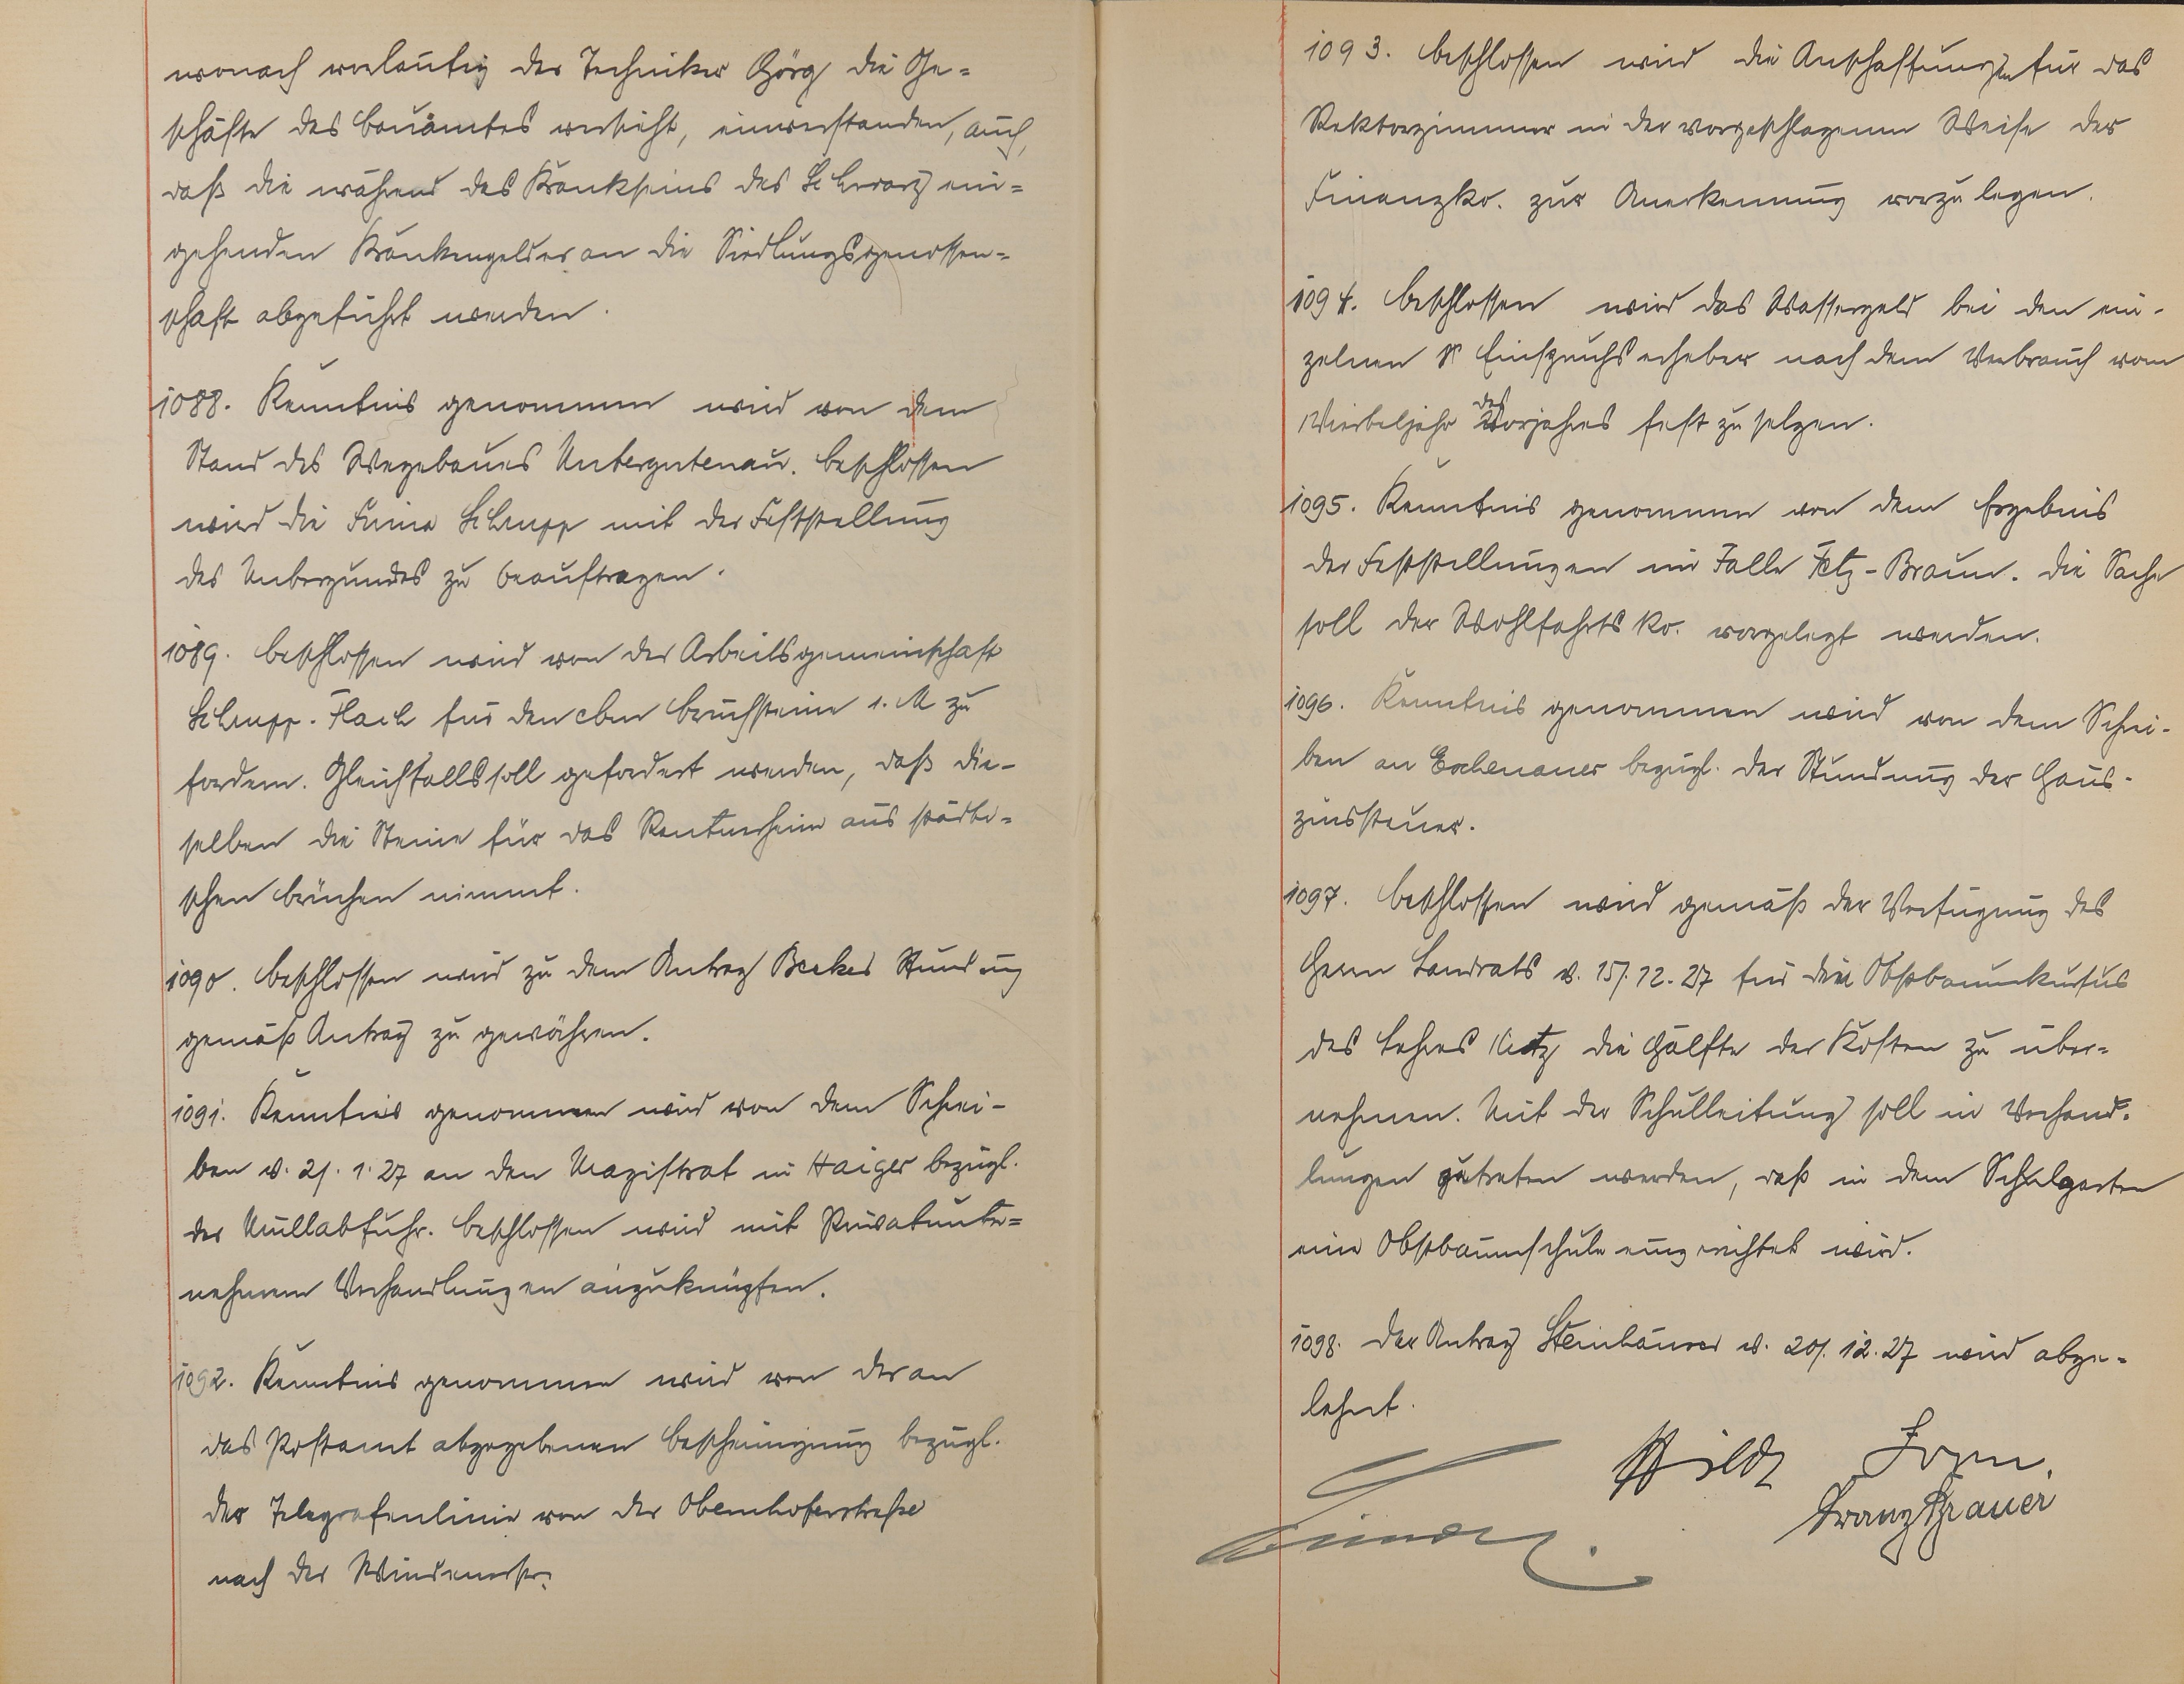 wonach vorläufig der Techniker Görg die Ge=
schäfte des Bauamtes versieht, einverstanden, auch,
daß die während des Krankseins des Schwarz ein=
gehenden Krankengelder an die Siedlungsgenossen=
schaft abgeführt werden.
1088. Kenntnis genommen wird von dem
Stand des Wegebaues Untergutenau. Beschlossen
wird die Firma Schrupp mit der Feststellung
des Untergrundes zu beauftragen.
1089. Beschlossen wird von der Arbeitsgemeinschaft
Schrupp-Flach für den cbm Bruchsteine 1. M zu
fordern. Gleichfalls soll gefordert werden, daß die-
selben die Steine für das Rentnerheim aus städti-
schen Brüchen nimmt.
1090. Beschlossen wird zu dem Antrag Becker Stundung
gemäß Antrag zu gewähren.
1091. Kenntnis genommen wird von dem Schrei-
ben v. 21. 1. 27 an den Magistrat in Haiger bezügl.
der Müllabfuhr. Beschlossen wird mit Privatunter=
nehmern Verhandlungen anzuknüpfen.
1092. Kenntnis genommen wird von der an
das Postamt abgegebenen Bescheinigung bezügl.
der Telegrafenlinie von der Obernhoferstraße
nach der
1093. Beschlossen wird die Anschaffungen für das
Rektorzimmer in der vorgeschlagenen Weise der
Finanzko. zur Anerkennung vorzulegen.
1094. Beschlossen wird das Wassergeld bei den ein-
zelnen Einspruchserheber nach dem Verbrauch vom
Vierteljahr des Vorjahres fest zu setzen.
1095. Kenntnis genommen von dem Ergebnis
der Feststellungen im Falle Fetz-Braun. Die Sache
soll der Wohlfahrts Ko. vorgelegt werden.
1096. Kenntnis genommen wird von dem Schrei-
ben an bezügl. der Stundung der Haus-
zinssteuer.
1097. Beschlossen wird gemäß der Verfügung des
Herrn Landrats v. 15/. 12. 27 für die Obstbaumkursus
des Lehrers die Hälfte der Kosten zu über=
nehmen. Mit der Schulleitung soll in Verhand-
lungen getreten werden, daß in dem Schulgarten
eine Obstbaumschule eingerichtet wird.
1098. Der Antrag Steinhauer v. 20/. 12. 27 wird abge-
lehnt.